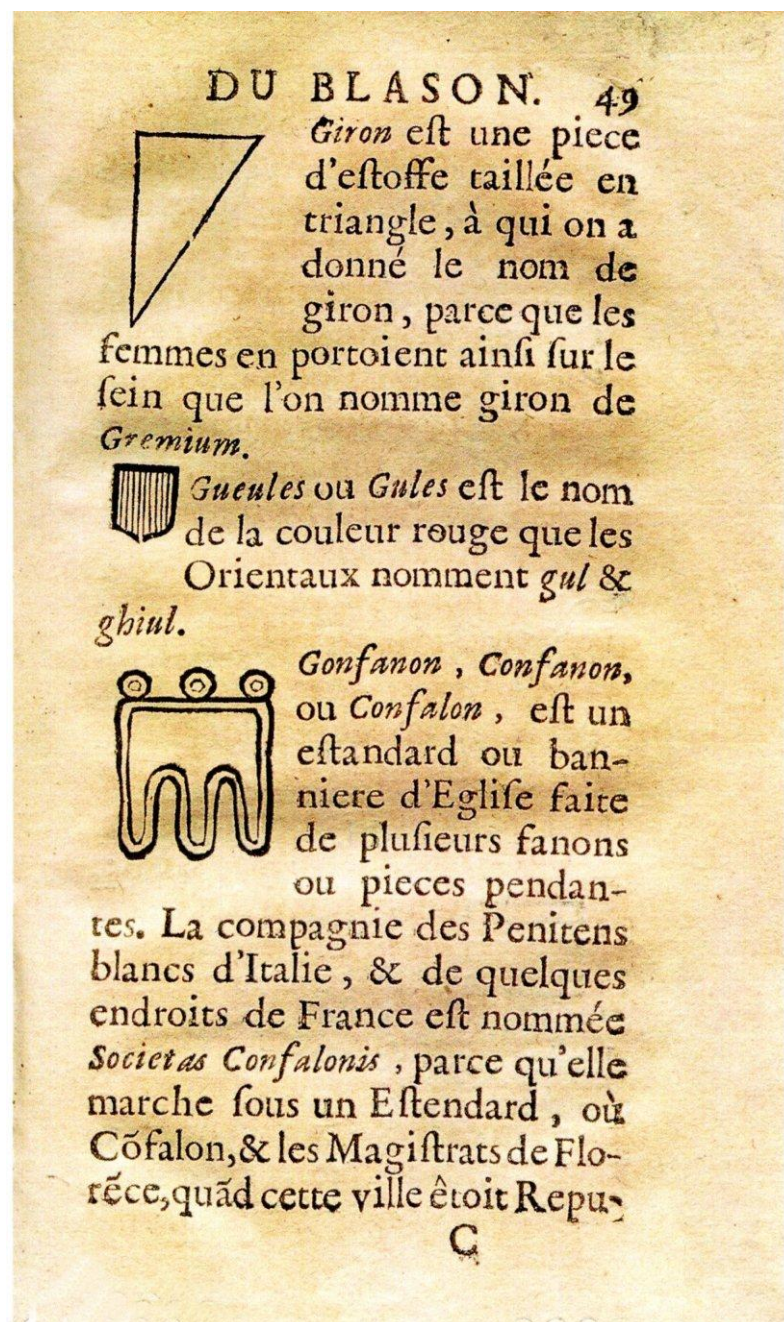 DU BLASON. 49
Giron eſt une piece
d'eſtoffe taillée en
triangle, à qui on a
donné le nom de
giron, parce que les
femmes en portoient ainſi ſur le
ſein que l'on nomme giron de
Gremium.
Gueules ou Gules eſt le nom
de la couleur rouge que les
Orientaux nomment gul &
ghiul.
Gonfanon, Confanon,
ou Confalon, eſt un
eſtandard ou ban-
niere d'Egliſe faite
de pluſieurs fanons
ou pieces pendan-
tes. La compagnie des Penitens
blancs d'Italie, & de quelques
endroits de France eſt nommée
Societas Confalonis, parce qu'elle
marche ſous un Eſtendard, où
Cõfalon, & les Magiſtrats de Flo-
rẽce, quãd cette ville êtoit Repu-
C